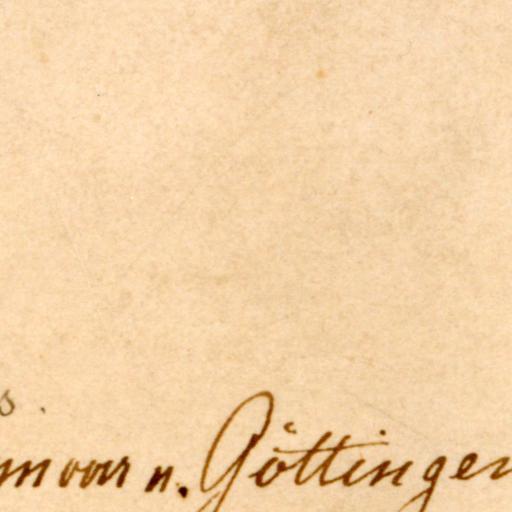 s.
moor n. Göttingen